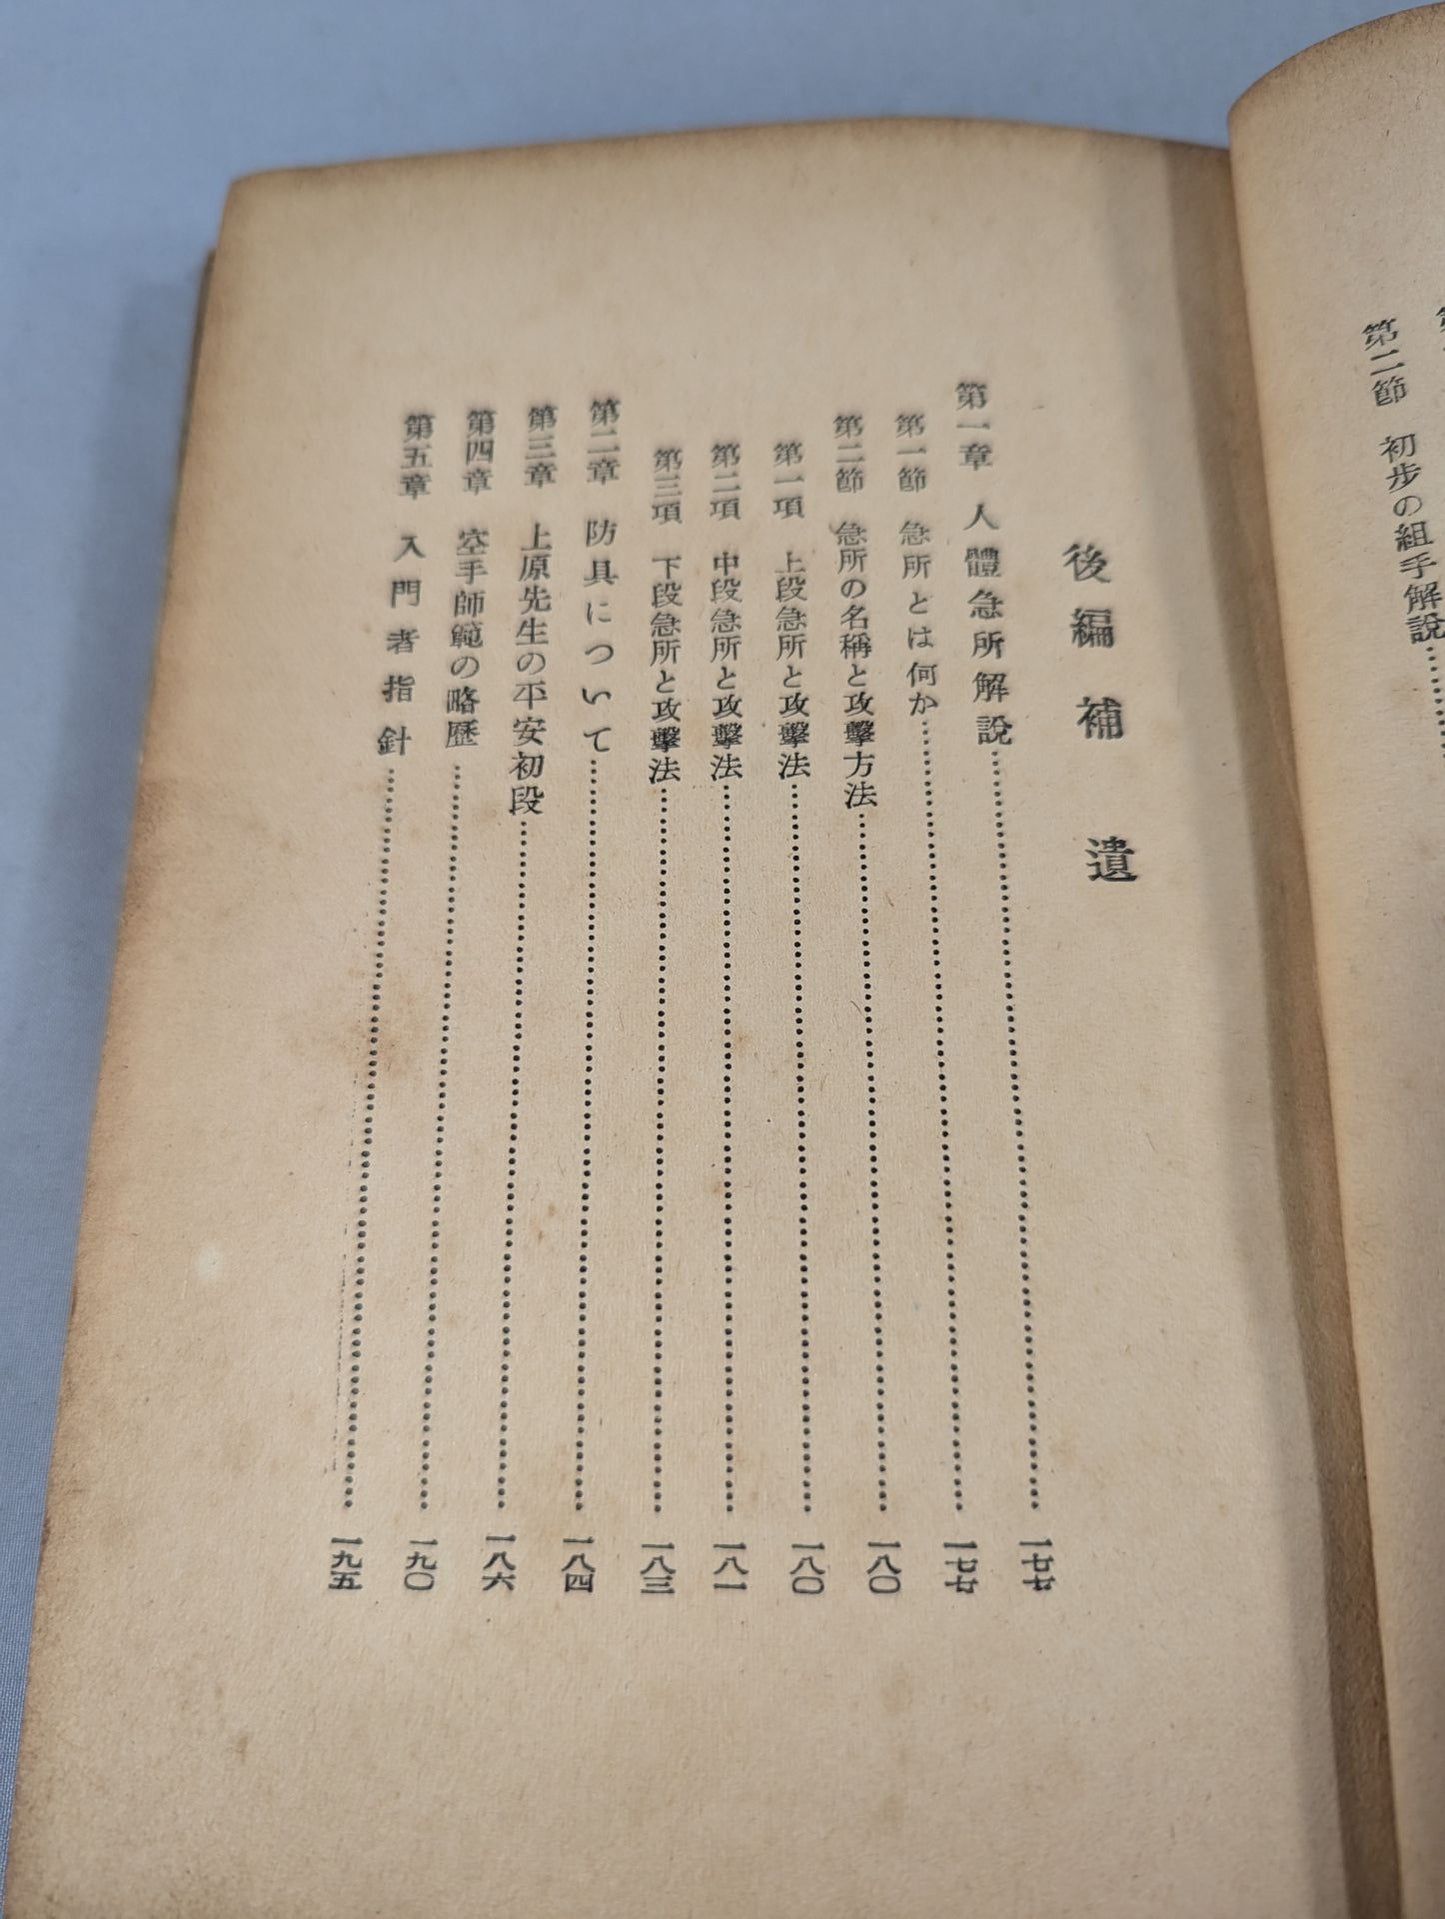 第二節　初步の組手解説……
後編補遺
第一章　人體急所解説……一七七
第一節　急所とは何か……一七七
第二節　急所の名稱と攻擊方法……一八〇
第一項　上段急所と攻擊法……一八〇
第二項　中段急所と攻擊法……一八一
第三項　下段急所と攻擊法……一八三
第二章　防具について……一八四
第三章　上原先生の平安初段……一八六
第四章　空手師範の略歷……一九〇
第五章　入門者指針……一九五